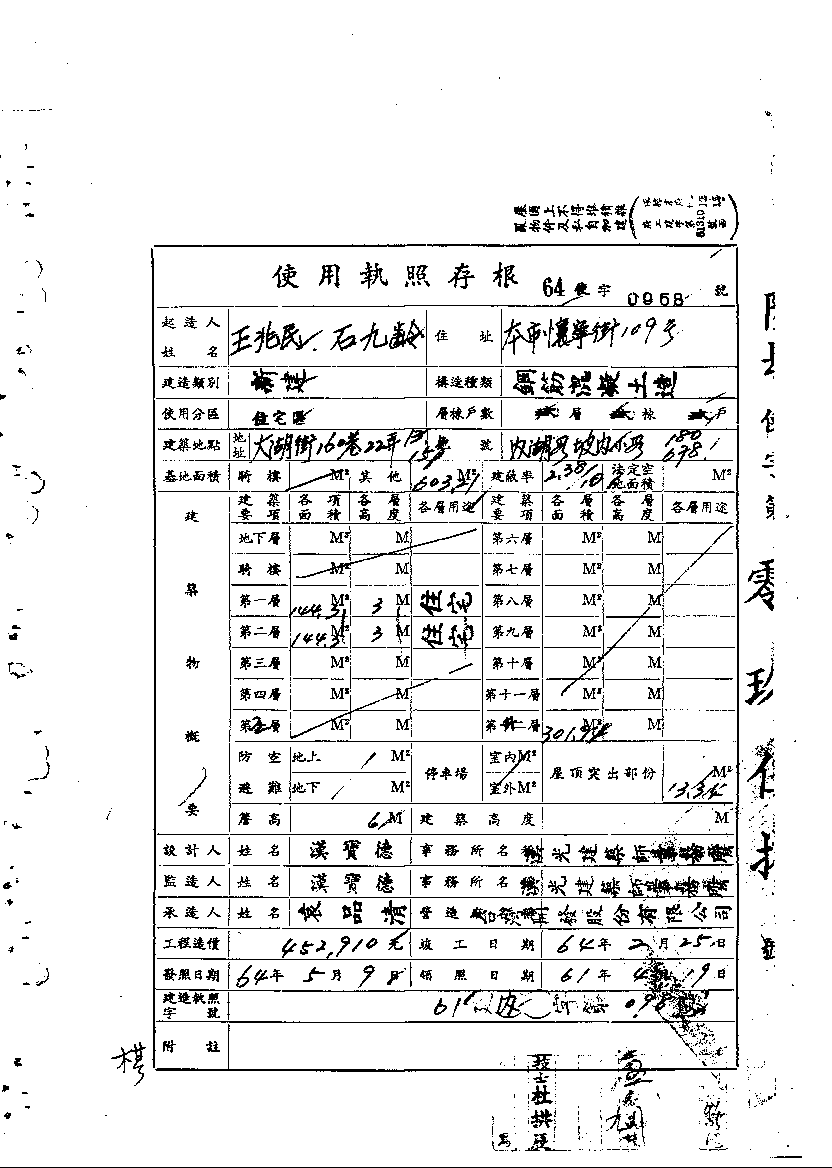 屋頂上不得堆積雜
物件及私自加建
使用執照存根 64 使字 0968 號
起造人姓名 王兆民、石九齡 住址 本市懷寧街109号
建造類別 新建 構造種類 鋼筋混凝土造
使用分區 住宅區 層棟戶數 層 棟 戶
建築地點 地址 大湖街160巷22弄 號
基地面積 騎樓 M² 其他 603.21 M² 建蔽率 2.38/10 法定空地面積 M²
建築物概要
建築要項 各項面積 各層高度 各層用途 建築要項 各層面積 各層高度 各層用途
地下層 M² M 第六層 M² M
騎樓 M² M 第七層 M² M
第一層 144.31 M² 3 M 住宅 第八層 M² M
第二層 144.31 M² 3 M 住宅 第九層 M² M
第三層 M² M 第十層 M² M
第四層 M² M 第十一層 M² M
第五層 M² M 層 M² M
防空避難 地上 M² 停車場 室內M² 屋頂突出部份 M²
地下 M² 室外M²
簷高 6 M 建築高度 M
設計人 姓名 漢寶德 事務所名 漢光建築師事務所
監造人 姓名 漢寶德 事務所名 漢光建築師事務所
承造人 姓名 袁品清 營造 開發股份有限公司
工程造價 452,910元 竣工日期 64年2月25日
發照日期 64年5月9日 領照日期 61年4月19日
建造執照字號 61 內 字第
附註
技士杜拱